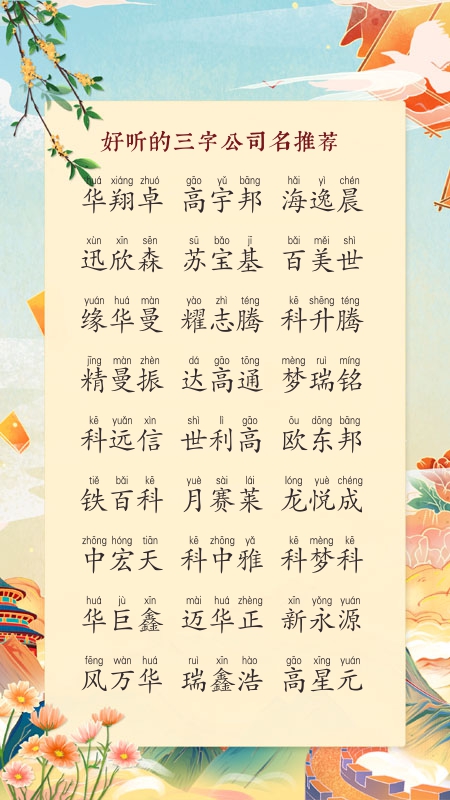 好听的三字公司名推荐
huá xiáng zhuó gāo yǔ bāng hǎi yì chén
华翔卓 高宇邦 海逸晨
xùn xīn sēn sū bǎo jī bǎi měi shì
迅欣森 苏宝基 百美世
yuán huá màn yào zhì téng kē shēng téng
缘华曼 耀志腾 科升腾
jīng màn zhèn dá gāo tōng mèng ruì míng
精曼振 达高通 梦瑞铭
kē yuǎn xìn shì lì gāo ōu dōng bāng
科远信 世利高 欧东邦
tiě bǎi kē yuè sài lái lóng yuè chéng
铁百科 月赛莱 龙悦成
zhōng hóng tiān kē zhōng yǎ kē mèng kē
中宏天 科中雅 科梦科
huá jù xīn mài huá zhèng xīn yǒng yuán
华巨鑫 迈华正 新永源
fēng wàn huá ruì xīn hào gāo xīng yuán
风万华 瑞鑫浩 高星元